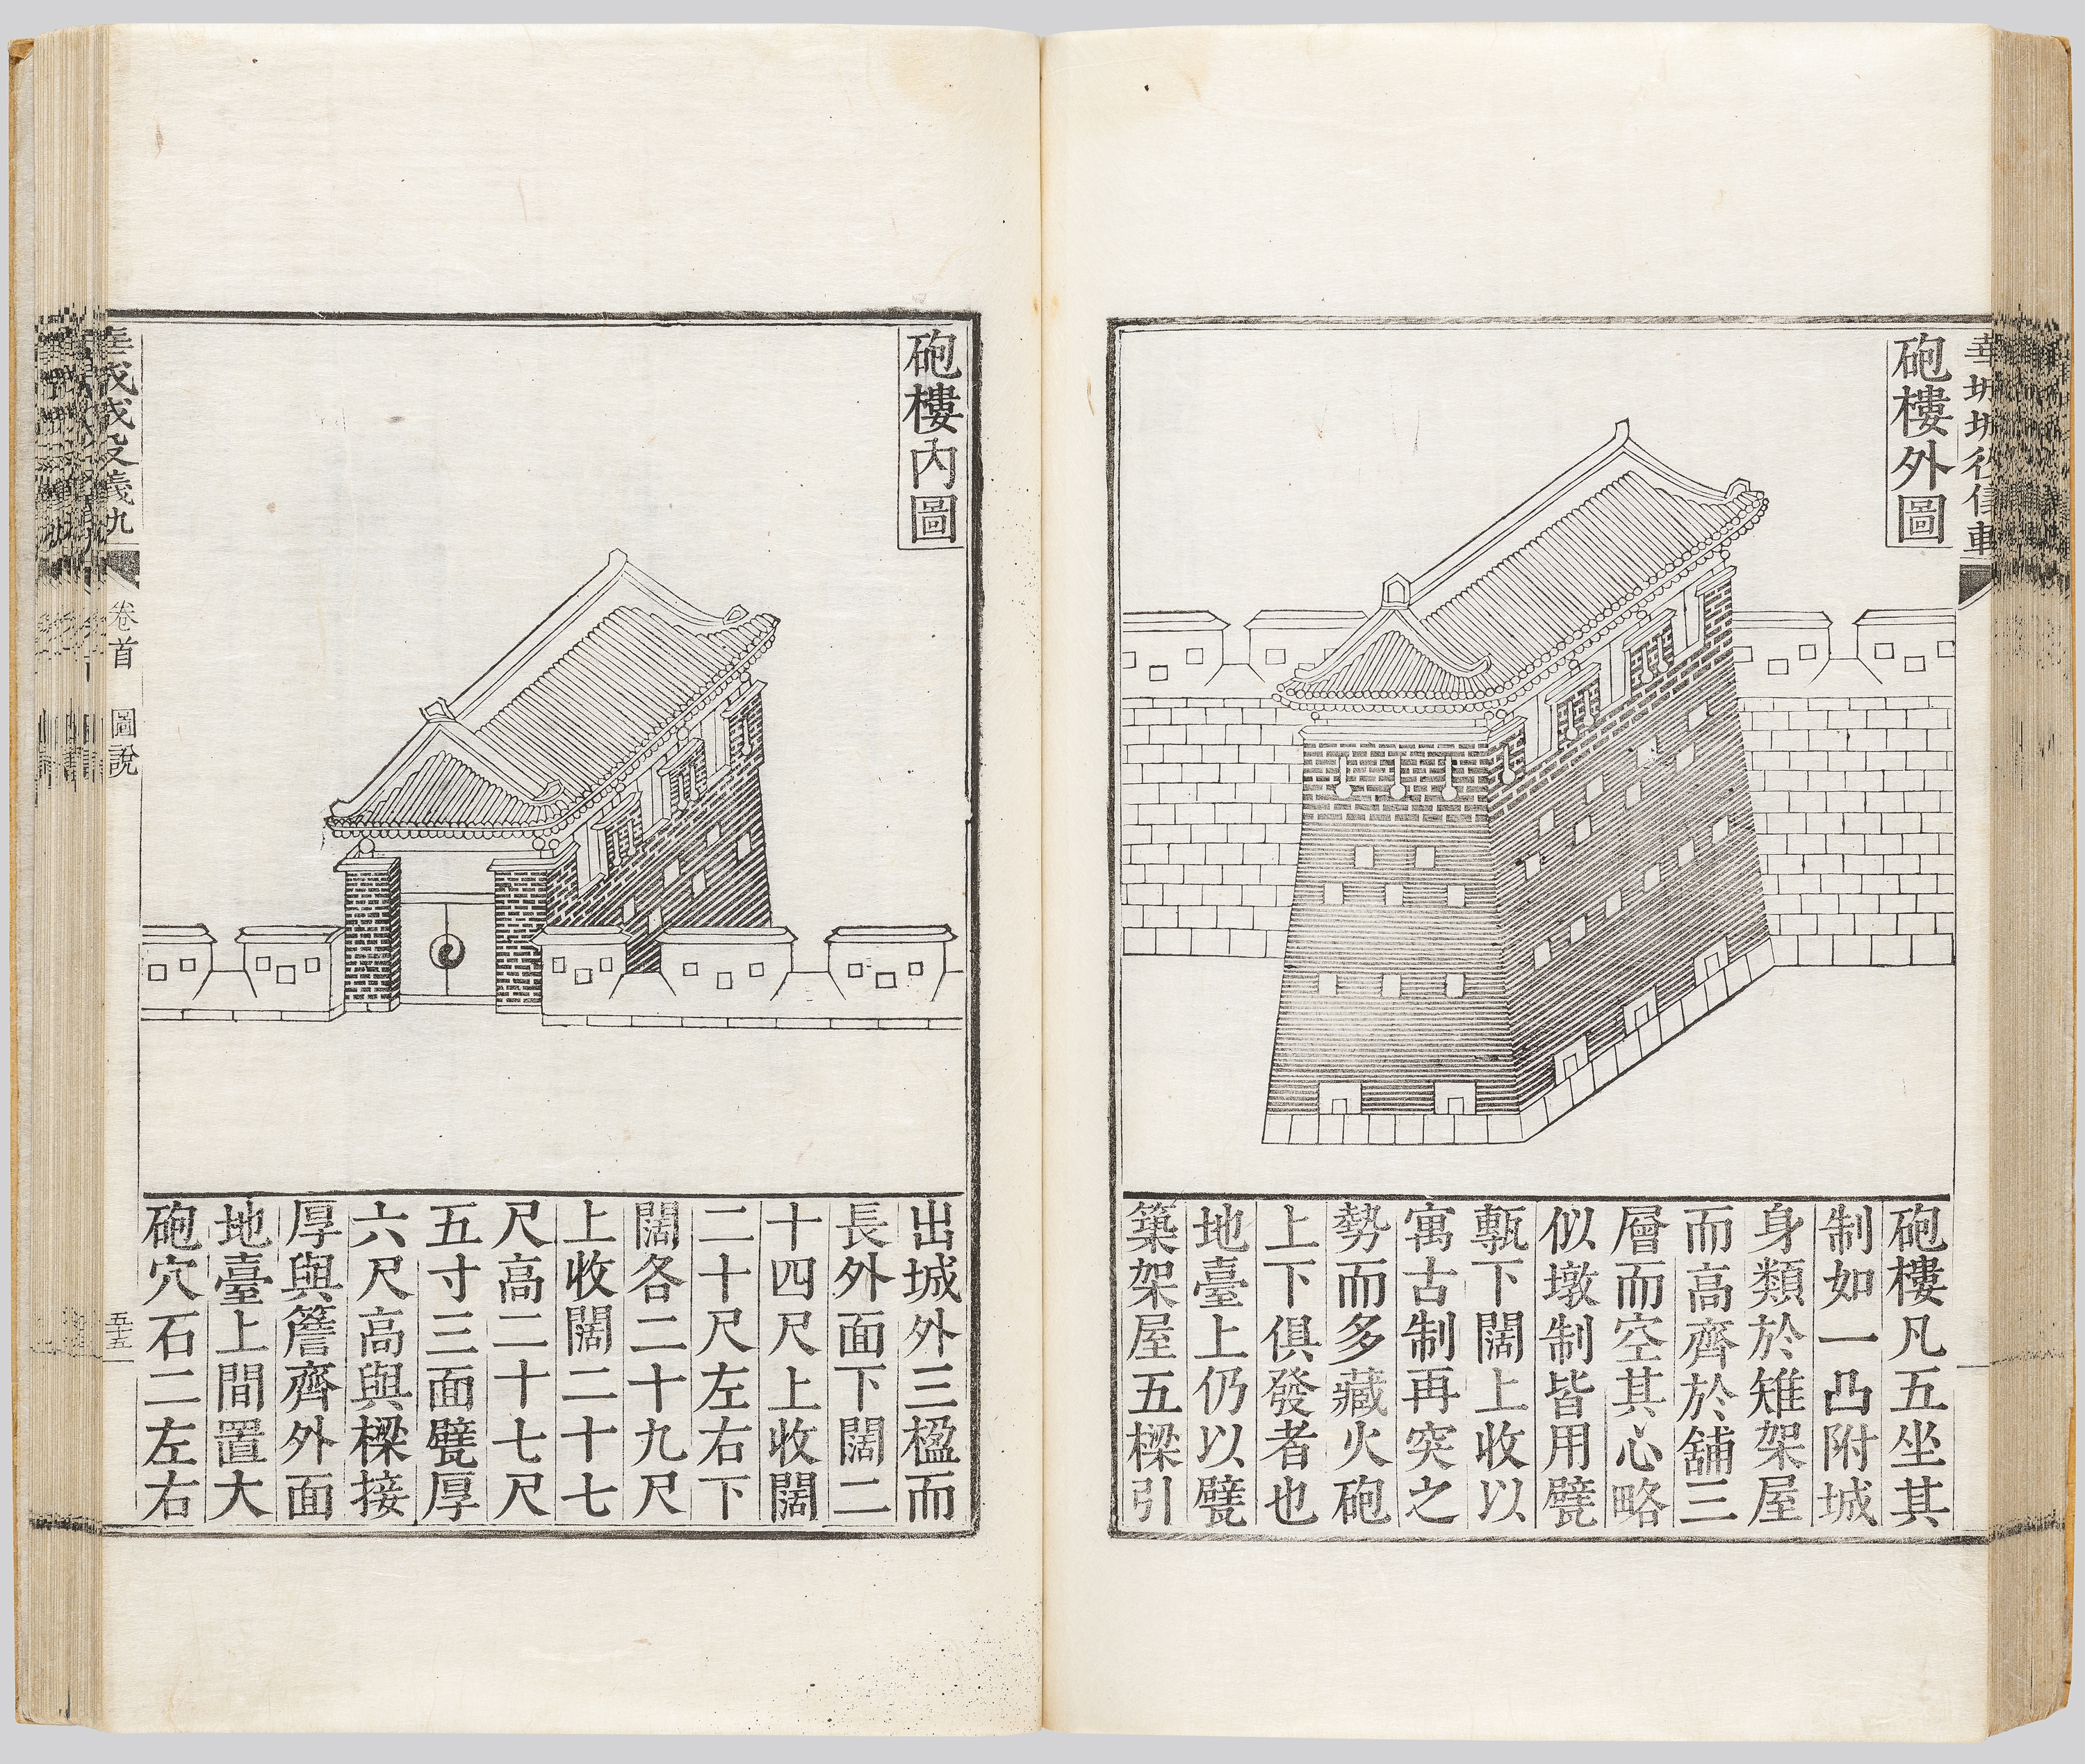 砲樓外圖
砲樓凡五坐其
制如一凸附城
身類於雉架屋
而高齊於舖三
層而空其心略
似墩制皆用甓
甎下闊上收以
寓古制再突之
勢而多藏火砲
上下俱發者也
地臺上仍以甓
築架屋五樑引
砲樓內圖
出城外三楹而
長外面下闊二
十四尺上收闊
二十尺左右下
闊各二十九尺
上收闊二十七
尺高二十七尺
五寸三面甓厚
六尺高與樑接
厚與簷齊外面
地臺上間置大
砲穴石二左右
卷首
圖說
五十五